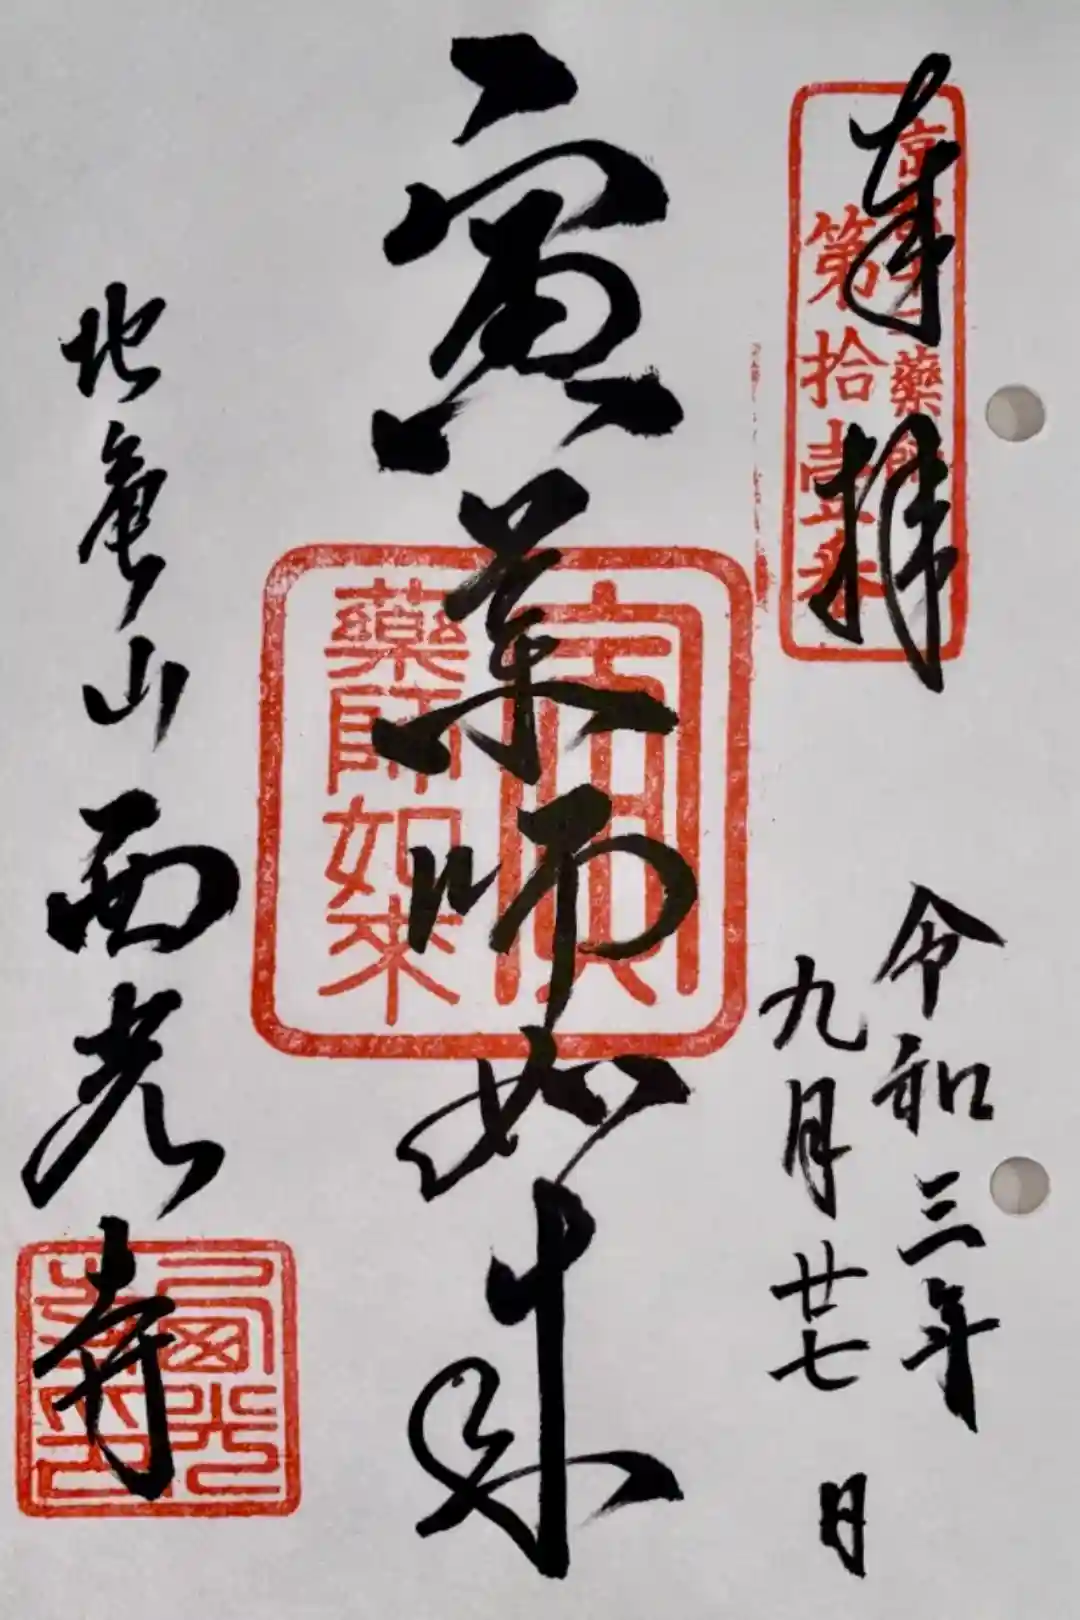 奉拝
京都十二薬師
第拾壹番
令和三年
九月廿七日
寅薬師如来
寅
藥師如來
西光寺
西光
寺印